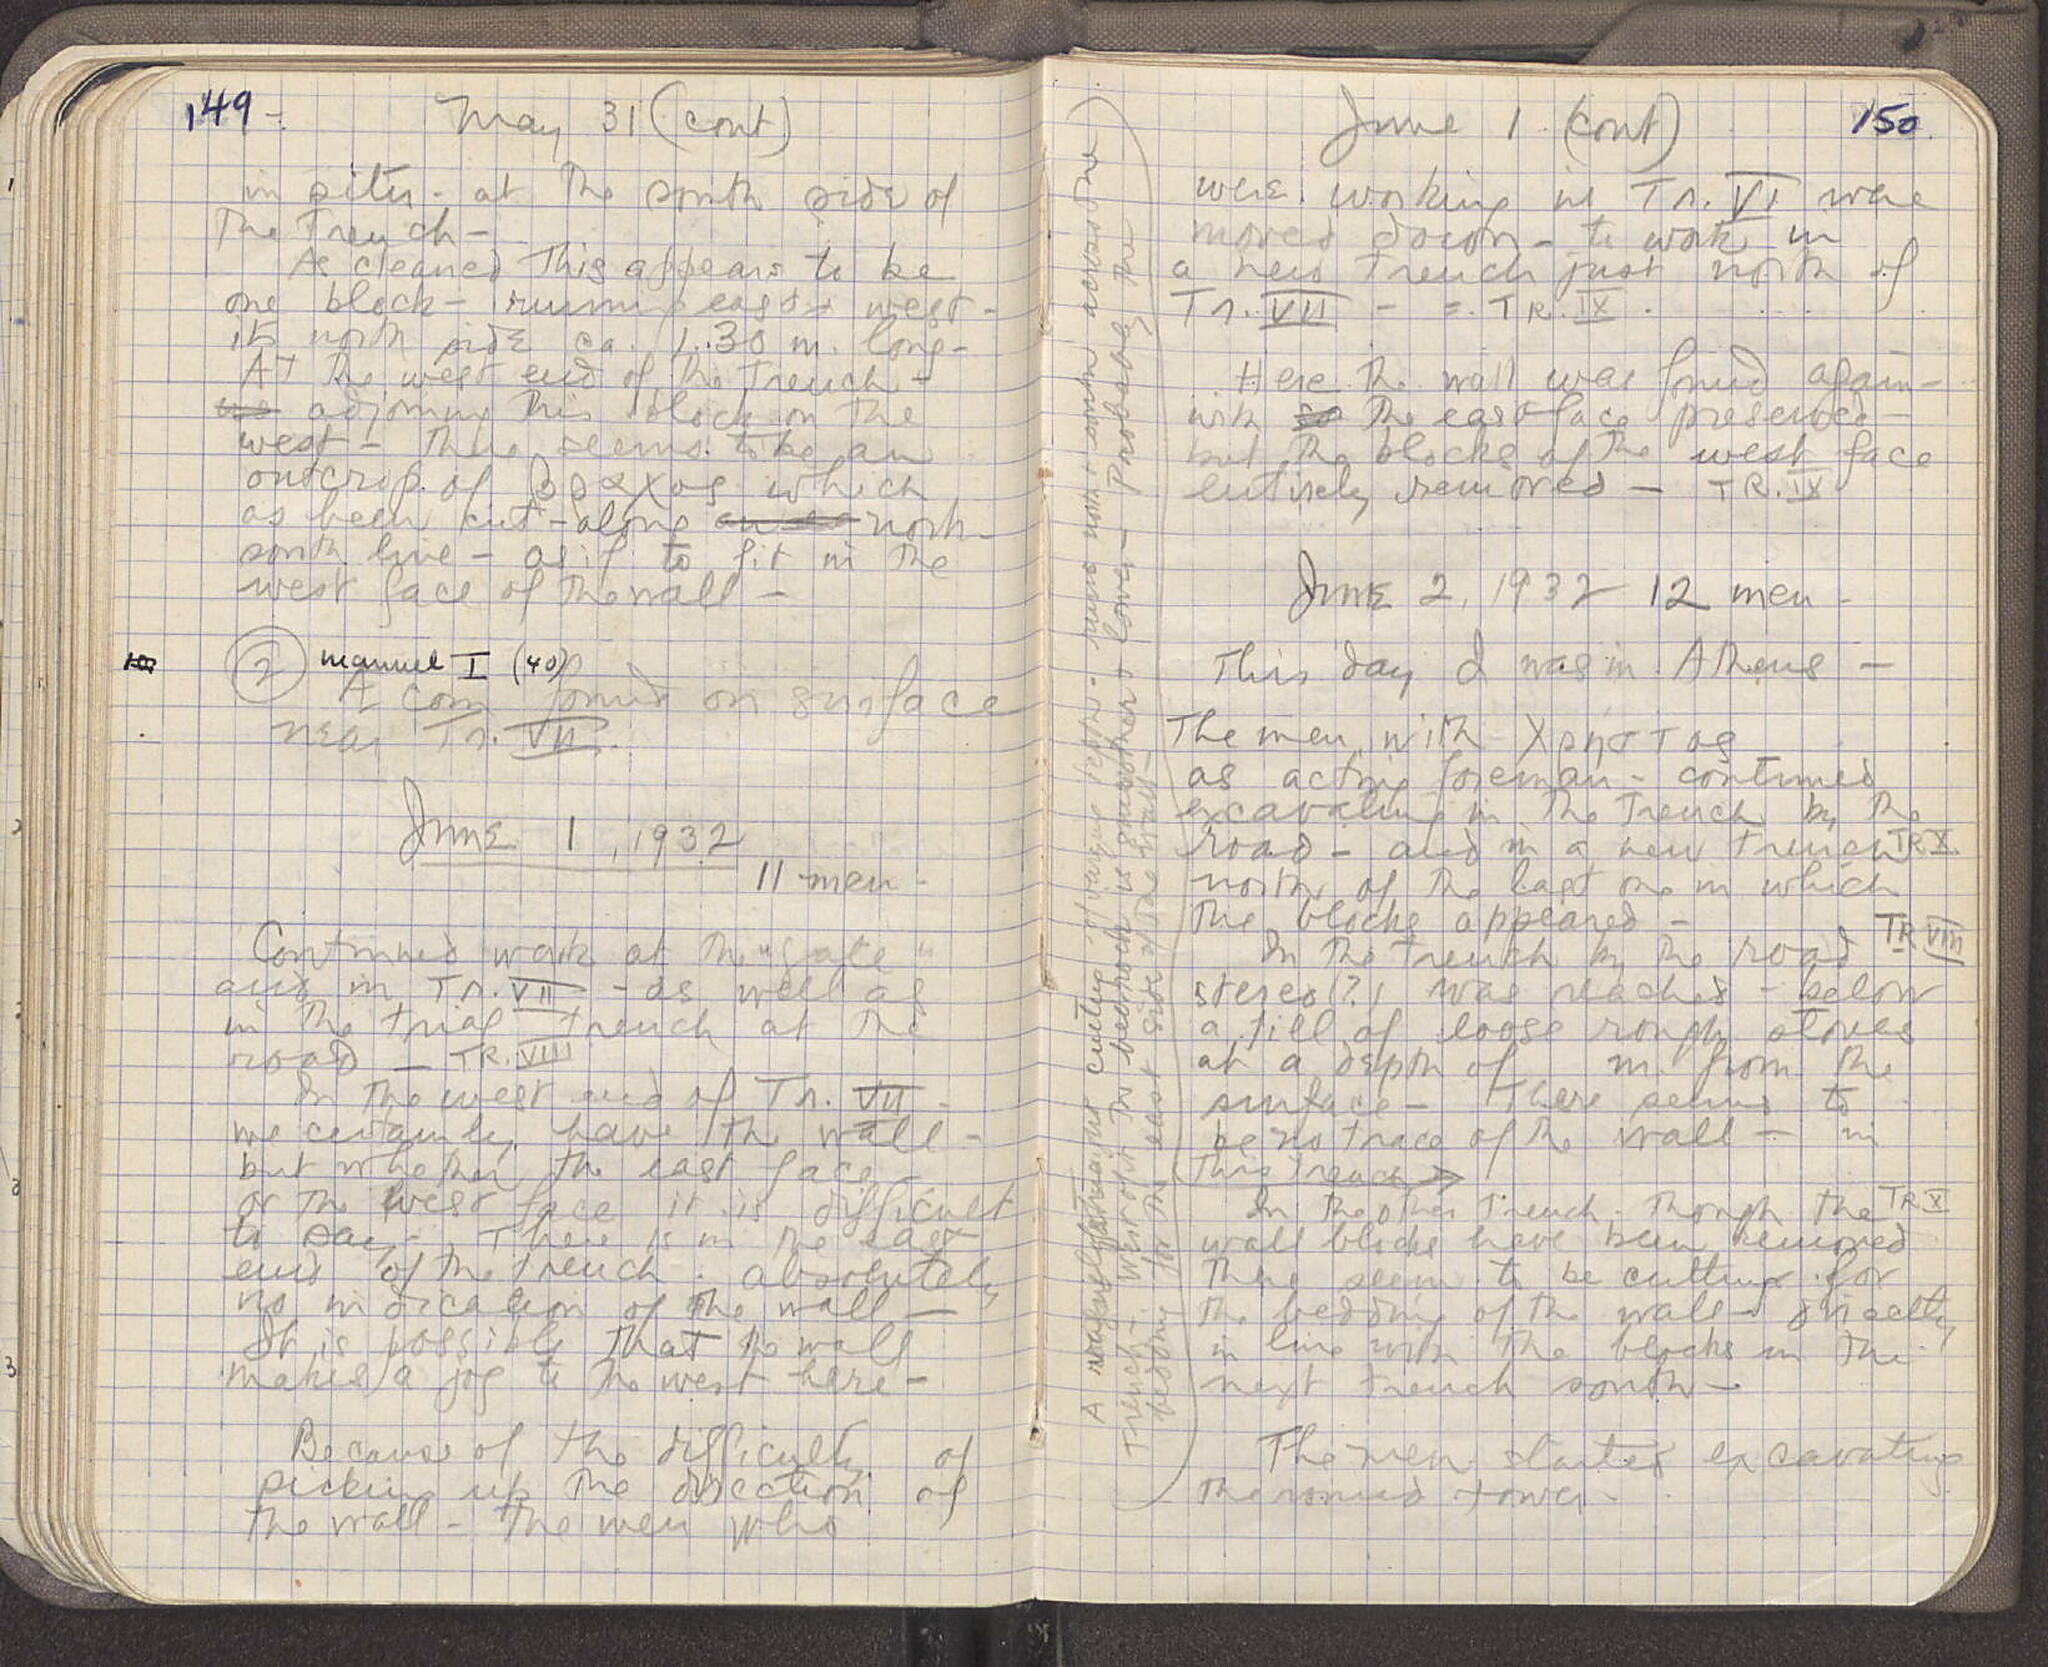 149 -
May 31 (cont)
in situ - at the south side of
the trench -
As cleaned this appears to be
one block - running east + west -
its north side ca. 1.30 m. long -
At the west end of the trench -
adjoining this block on the
west - there seems to be an
outcrop of Βραχος which
as been cut - along north
south line - as if to fit in the
west face of the wall -
② manuel I (40)
A coin found on surface
near Tr. VII.
June 1, 1932
11 men -
Continued work at the "gate"
and in Tr. VII - as well as
in the trial trench at the
road - TR. VIII
In the west end of Tr. VII -
we certainly have the wall -
but whether the east face -
or the west face it is difficult
to say - There is in the east
end of the trench absolutely
no indication of the wall -
It is possible that the wall
makes a jog to the west here -
Because of the difficulty of
picking up the direction of
the wall - the men who
June 1 (cont)
150.
were working in Tr. VI were
moved down - to work in
a new trench just north of
Tr. VII - = TR. IX.
Here the wall was found again -
with the east face preserved -
but the blocks of the west face
entirely removed - TR. IX
June 2, 1932 12 men -
This day I was in Athens -
The men with Χρηστος
as acting foreman - continued
excavating in the trench by the
road - and in a new trench TR X.
north of the last one in which
the blocks appeared -
In the trench by the road TR VIII
stereo (?) was reached - below
a fill of loose rough stones
at a depth of m. from the
surface - There seems to
be no trace of the wall - in
this trench →
In the other trench - though the TR X
wall blocks have been removed
there seem to be cuttings for
the bedding of the wall - directly
in line with the blocks in the
next trench south -
The men started excavating
the round tower -
A cutting of varying depths - runs north + south across the
trench - west of it the bedrock is smoother + lower - Probably the
bedding for the east side of the wall -